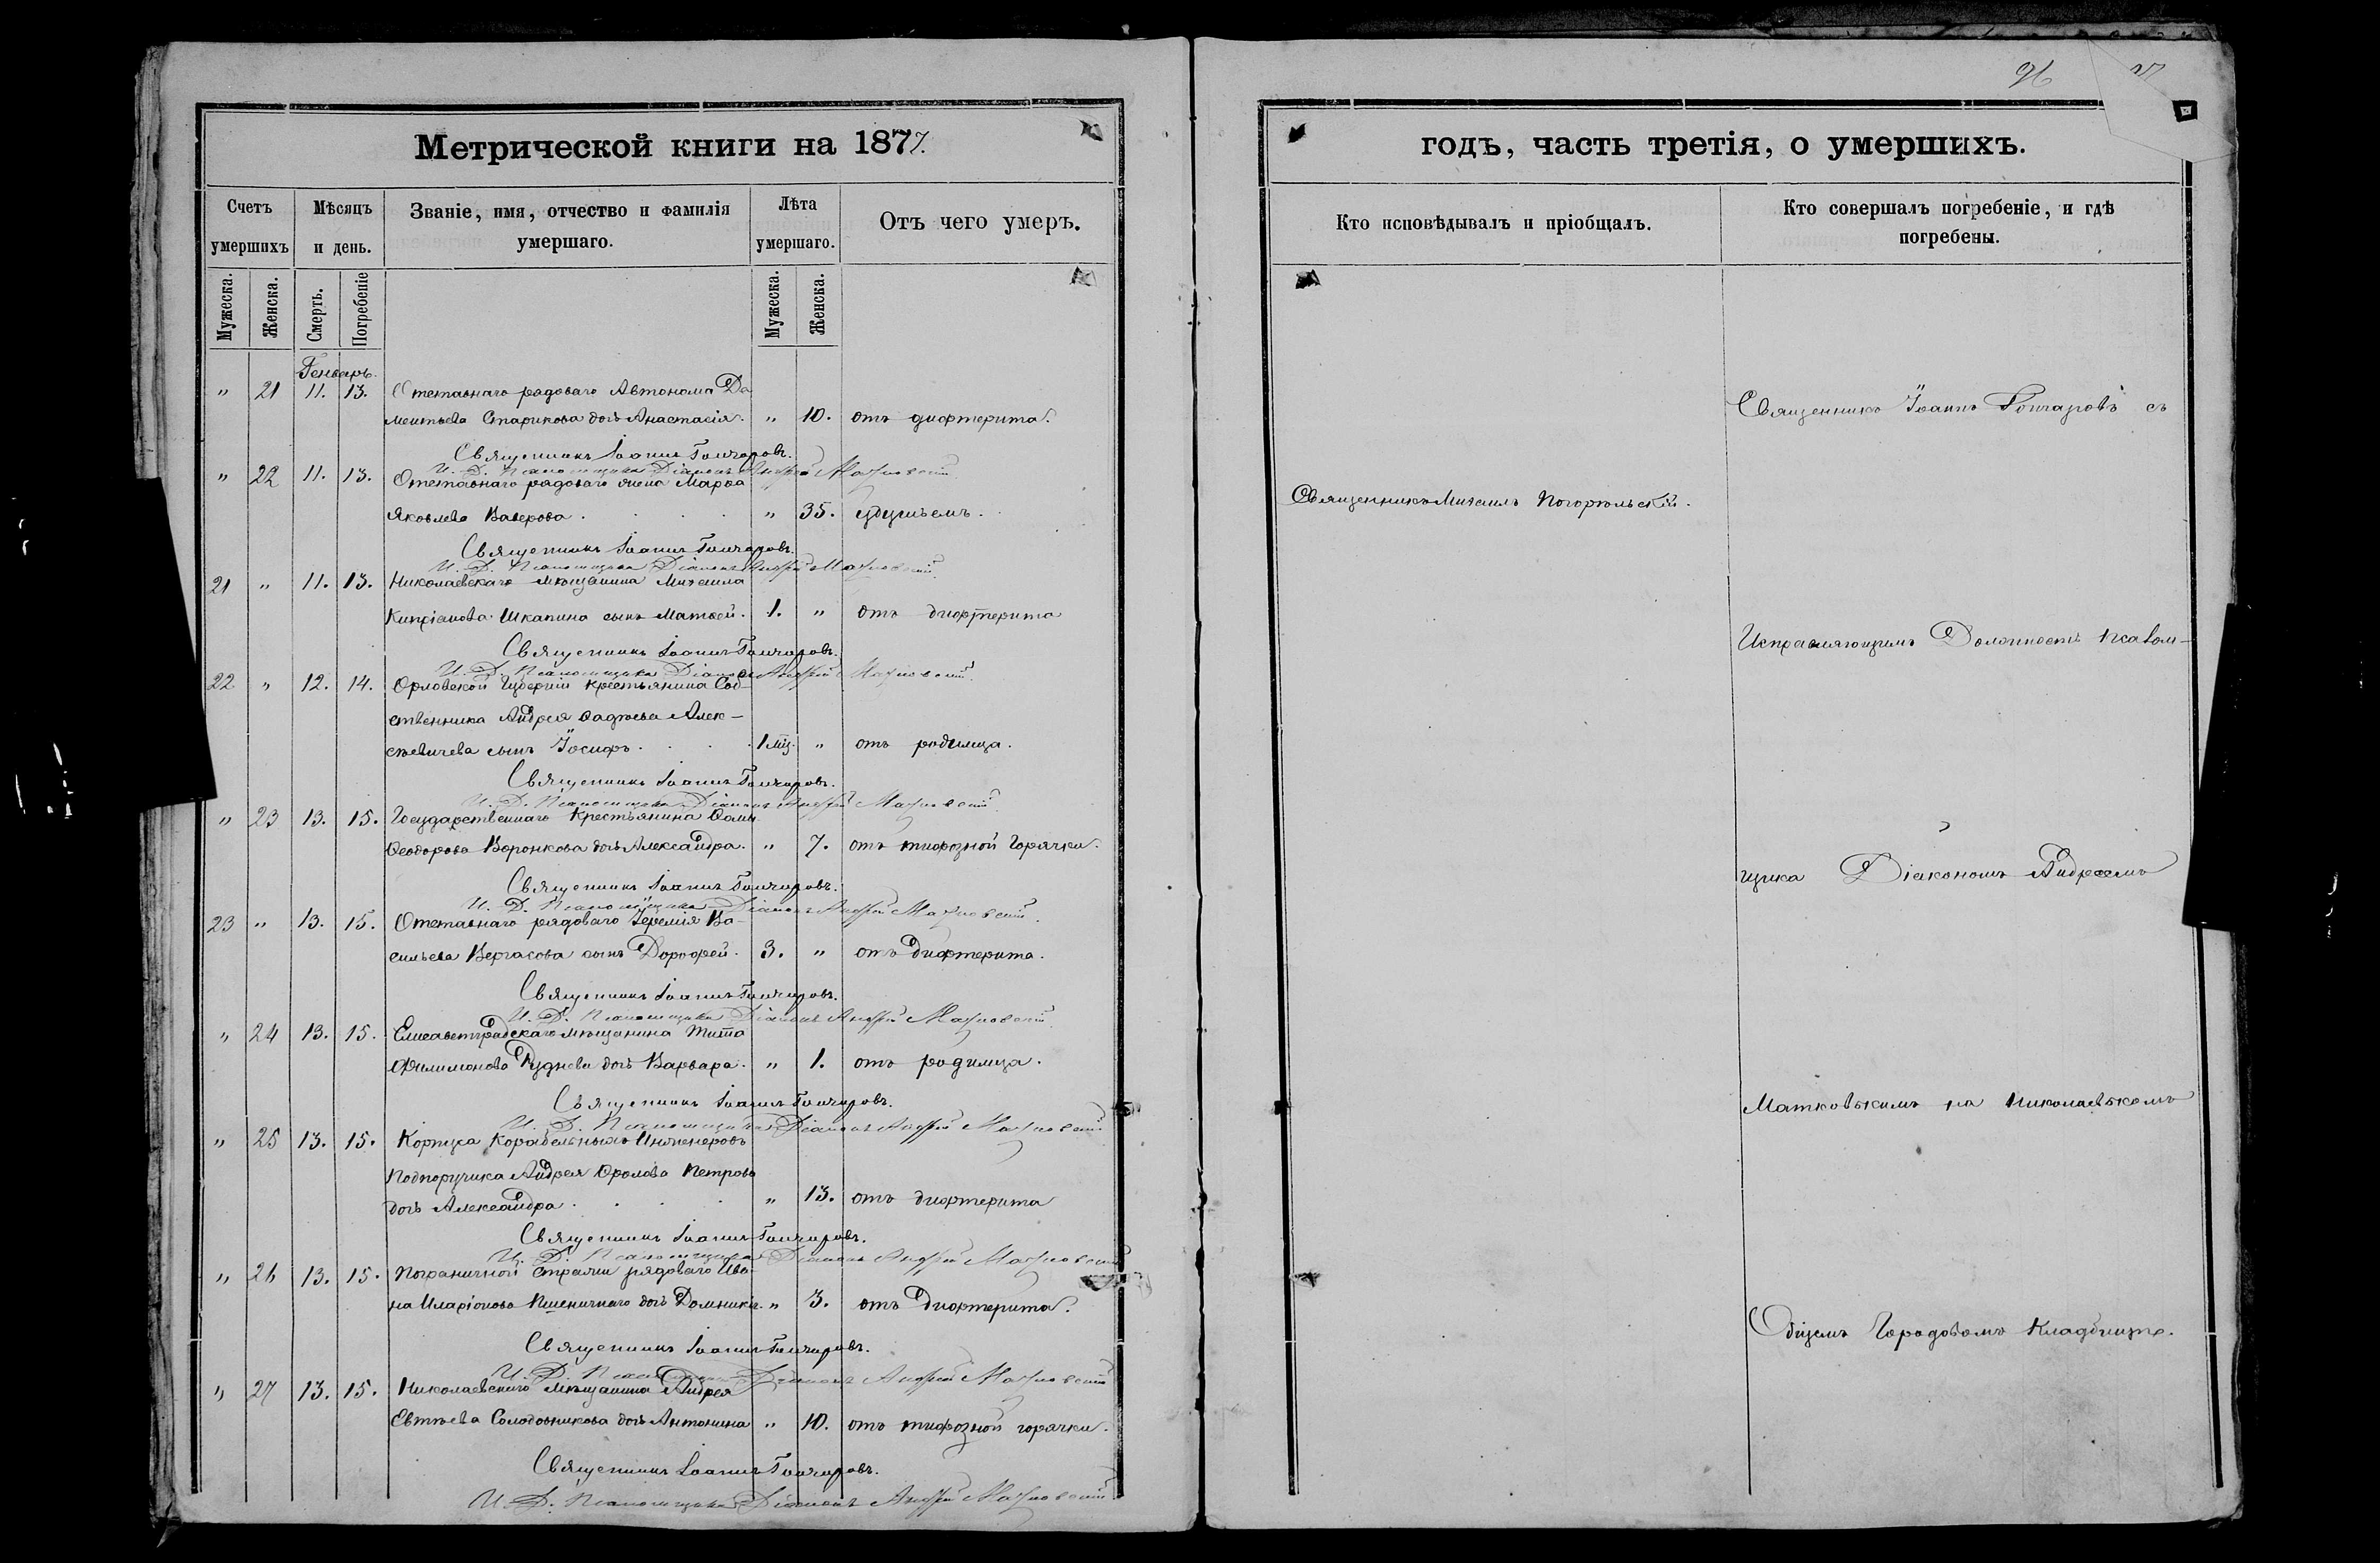 96
Метрической книги на 1877.
годъ, часть третія, о умершихъ.
Счетъ умершихъ
Мѣсяцъ и день.
Званіе, имя, отчество и фамилія умершаго.
Лѣта умершаго.
Отъ чего умеръ.
Кто исповѣдывалъ и пріобщалъ.
Кто совершалъ погребеніе, и гдѣ погребены.
Мужеска. Женска. Смерть. Погребеніе Мужеска. Женска.
Генварь.
" 21 11. 13. Отставнаго рядоваго Автонома До
ментьева Старикова дочь Анастасія. " 10. отъ дифтерита.
Священникъ Іоаннъ Гончаровъ.
И. Д. Псаломщика Діаконъ Андрей Матковскій
" 22 11. 13. Отставнаго рядоваго жена Марѳа
Яковлева Ваверова . " 35. удушьемъ.
Священникъ Іоаннъ Гончаровъ.
И. Д. Псаломщика Діаконъ Андрей Матковскій
21 " 11. 13. Николаевскаго мѣщанина Михаила
Кипріанова Шкапина сынъ Матвей. 1. " отъ дифтерита
Священникъ Іоаннъ Гончаровъ.
И. Д. Псаломщика Діаконъ Андрей Матковскій
22 " 12. 14. Орловской Губерніи крестьянина Соб-
ственника Андрея Фадѣева Алек-
сѣевичева сынъ Іосифъ . 1 мц. " отъ родимца.
Священникъ Іоаннъ Гончаровъ.
И. Д. Псаломщика Діаконъ Андрей Матковскій
" 23 13. 15. Государственнаго Крестьянина Ѳомы
Ѳеодорова Воронкова дочь Александра. " 7. отъ тифозной Горячки.
Священникъ Іоаннъ Гончаровъ.
И. Д. Псаломщика Діаконъ Андрей Матковскій
23 " 13. 15. Отставнаго рядоваго Іеремія Ва-
сильева Вергасова сынъ Дорофей. 3. " отъ Дифтерита.
Священникъ Іоаннъ Гончаровъ.
И. Д. Псаломщика Діаконъ Андрей Матковскій
" 24 13. 15. Елисаветградскаго мѣщанина Тита
Филимонова Руднева дочь Варвара. " 1. отъ родимца.
Священникъ Іоаннъ Гончаровъ.
И. Д. Псаломщика Діаконъ Андрей Матковскій
" 25 13. 15. Корпуса Корабельныхъ Инженеровъ
Подпоручика Андрея Фролова Петрова
дочь Александра . " 13. отъ дифтерита
Священникъ Іоаннъ Гончаровъ.
И. Д. Псаломщика Діаконъ Андрей Матковскій
" 26 13. 15. Пограничной Стражи рядоваго Ива-
на Иларіонова Пшеничнаго дочь Домникія. " 3. отъ Дифтерита.
Священникъ Іоаннъ Гончаровъ.
И. Д. Псаломщика Діаконъ Андрей Матковскій
" 27 13. 15. Николаевскаго мѣщанина Андрея
Евтѣева Солодовникова дочь Антонина " 10. отъ тифозной горячки.
Священникъ Іоаннъ Гончаровъ.
И. Д. Псаломщика Діаконъ Андрей Матковскій
Священникъ Михаилъ Погорѣльскій.
Священникъ Іоаннъ Гончаровъ съ
Исправляющимъ Должность Псалом-
щика Діакономъ Андреемъ
Матковскимъ на Николаевскомъ
Общемъ Городовомъ Кладбищѣ.